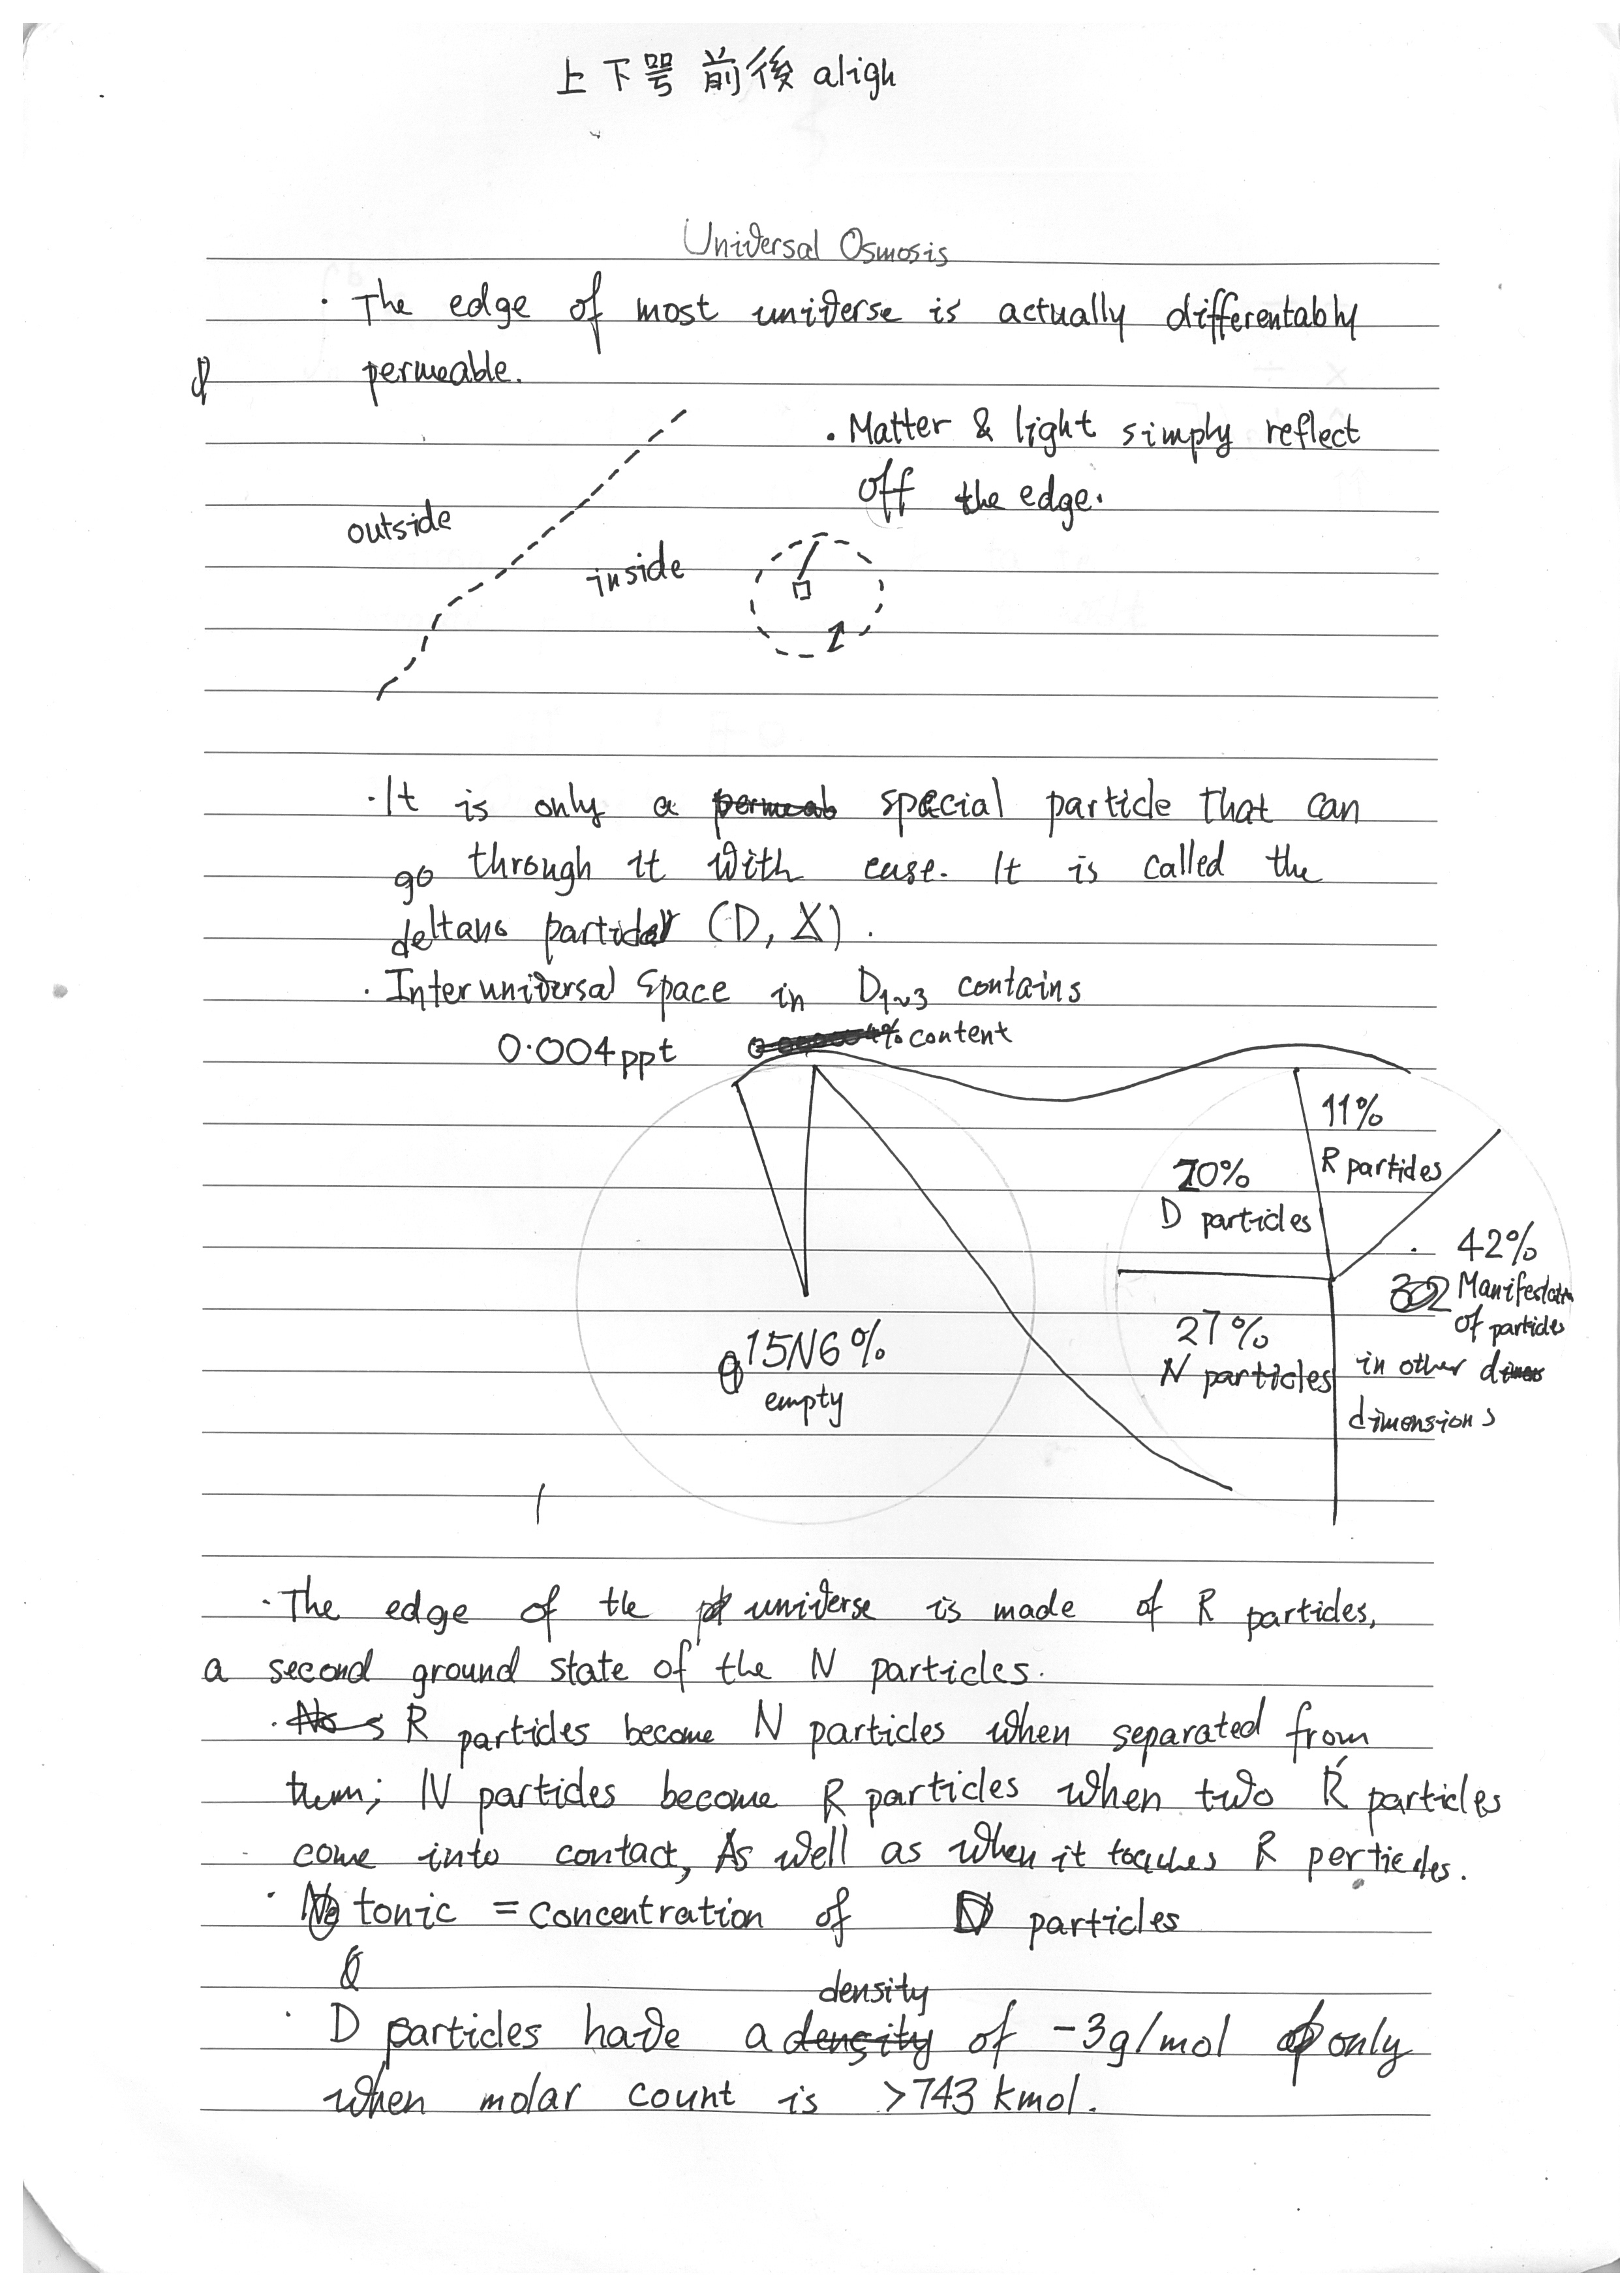 上下咢前後 aligh
Universal Osmosis
· The edge of most universe is actually differentably
permeable.
· Matter & light simply reflect
off the edge.
outside
inside
· It is only a special particle that can
go through it with ease. It is called the
deltans particle (D, X).
· Interuniversal Space in D1~3 contains
0.004ppt content
11%
R particles
20%
D particles
42%
Manifestatn
of particles
in other
dimensions
27%
N particles
15N6%
empty
· The edge of the universe is made of R particles,
a second ground state of the N particles.
· R particles become N particles when separated from
them; N particles become R particles when two R particles
come into contact, As well as when it touches R perticles.
· tonic = concentration of D particles
density
D particles have a of -3g/mol only
when molar count is >743 kmol.